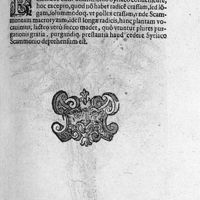 hoc excepto, quod nō habet radicē crassam, sed lō
gam, solummodoq. vt pollex crassam, vnde Scam
moneam macroryzam, idest longæ radicis, hanc plantam vo
cauimus; lacteo verò succo madet, quo vtuntur plures pur
gationis gratia, purgandiq. prestantia haud cedere Syriaco
Scammonio deprehensum est.